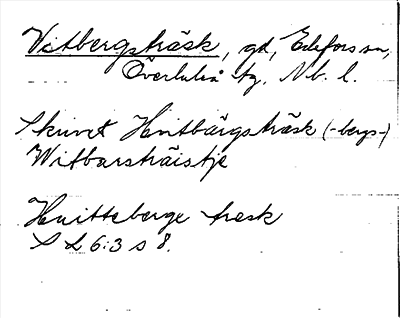 Vitbergsträsk, gd, Edefors sn,
Överluleå tg. Nb. l.
Skrivet Hvitbärgsträsk (-bergs-)
Witbarsträistje
Huitteberge træsk
S L 6:3 s 8.